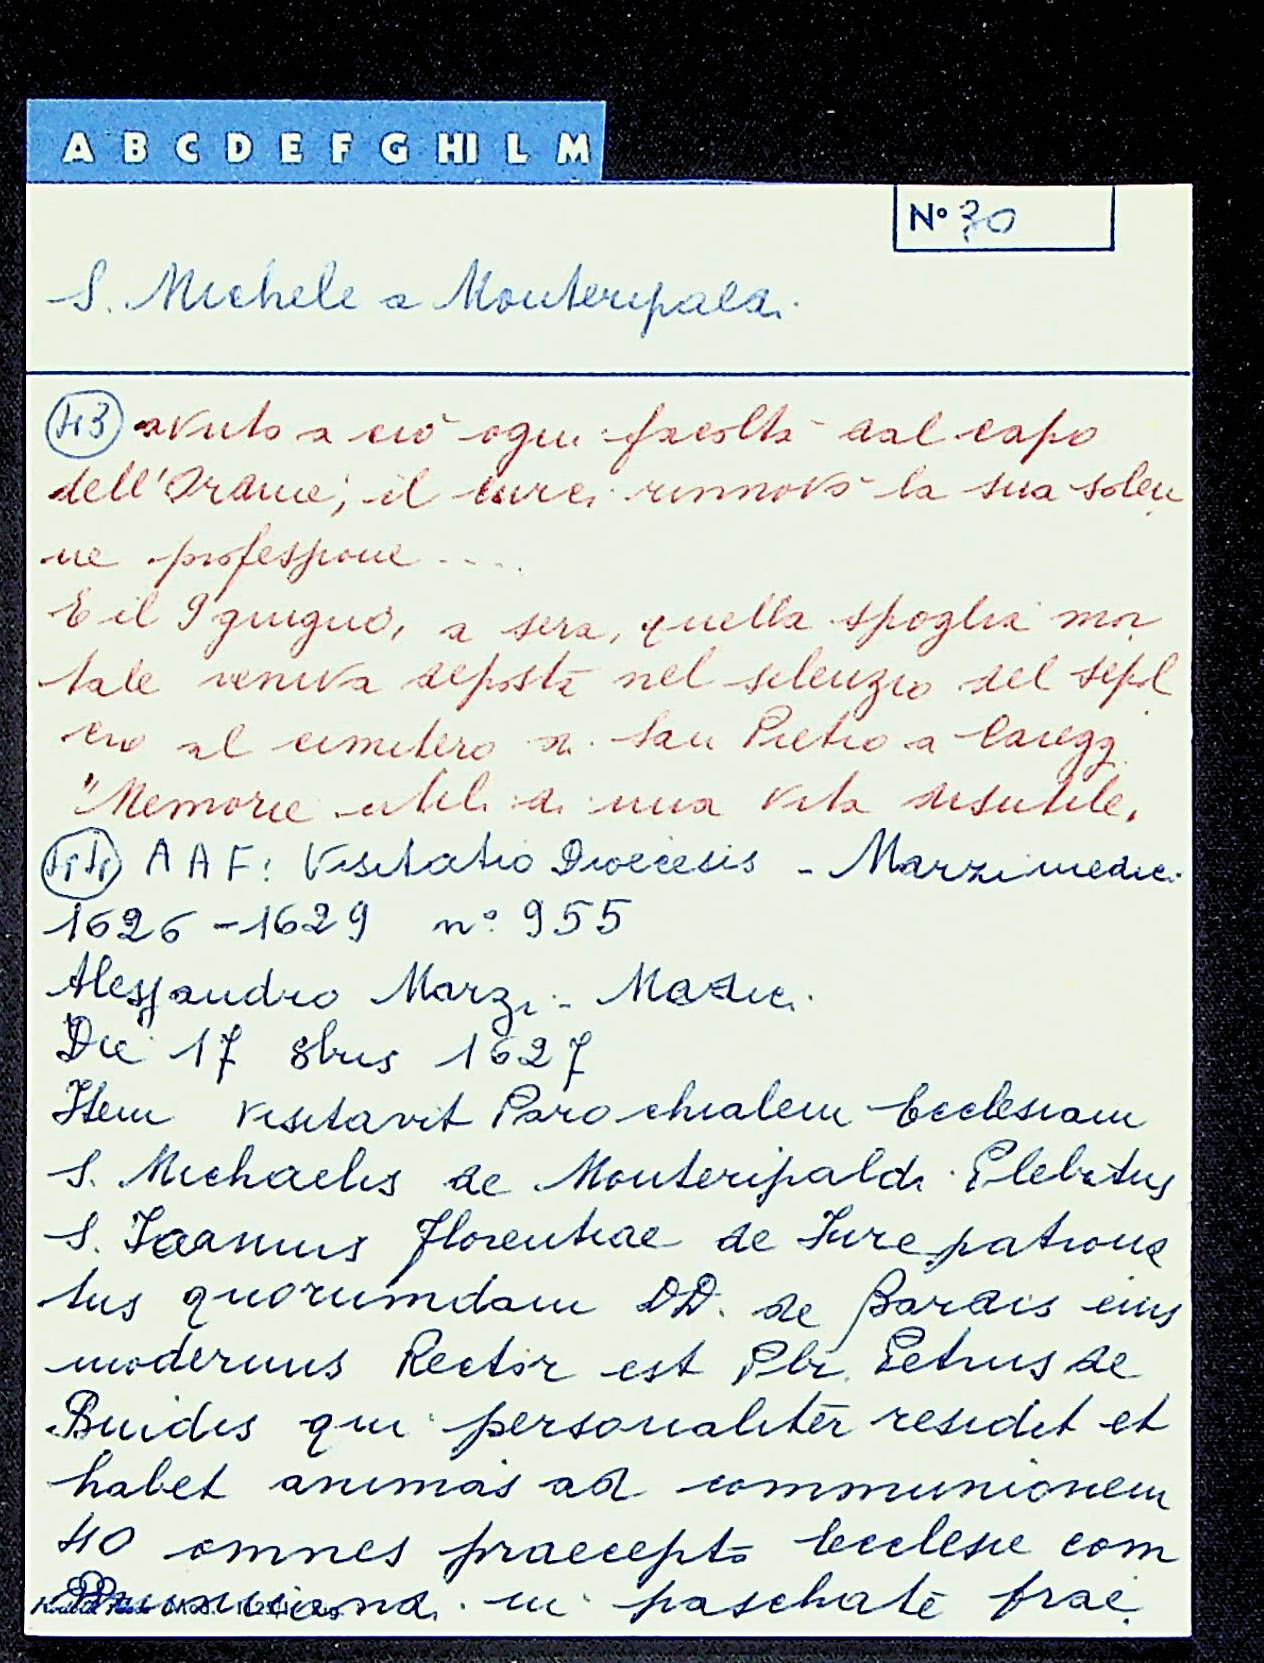 A B C D E F G HI L M
N° 30
S. Michele a Monteripaldi
43 avuto a ciò ogni facoltà dal capo
dell'Ordine, il curci rinnovò la sua solen
ne professione ....
E il 9 giugno, a sera, quella spoglia mor
tale veniva deposta nel silenzio del sepol
cro al cimitero di San Pietro a Careggi
"Memorie utili di una vita disutile,
44 A A F: Visitatio Dioecesis - Marzimedici
1626-1629 n° 955
Alessandro Marzi - Medici
Die 17 8bris 1627
Item visitavit Parochialem Ecclesiam
S. Michaelis de Monteripaldi Plebatus
S. Joannis Florentiae de Jure patrona
tus quorumdam DD. de Bardis eius
modernus Rector est Pbr. Petrus de
Buidis qui personaliter residet et
habet animas ad communionem
40 omnes praecepto Ecclesie com
in paschate prae